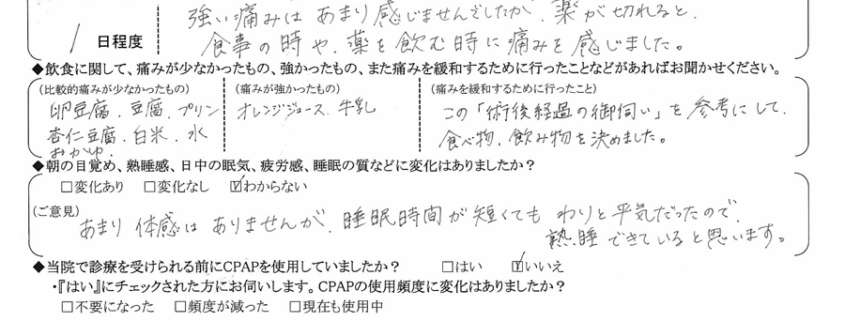 強い痛みは あまり感じませんでしたが、薬が切れると、
1 日程度
食事の時や、薬を飲む時に痛みを感じました。
◆飲食に関して、痛みが少なかったもの、強かったもの、また痛みを緩和するために行ったことなどがあればお聞かせください。
(比較的痛みが少なかったもの) (痛みが強かったもの) (痛みを緩和するために行ったこと)
卵豆腐、豆腐、プリン オレンジジュース、牛乳 この「術後経過の御伺い」を参考にして、
杏仁豆腐、白米、水 食べ物、飲み物を決めました。
おかゆ、
◆朝の目覚め、熟睡感、日中の眠気、疲労感、睡眠の質などに変化はありましたか?
□変化あり □変化なし ☑わからない
(ご意見)
あまり 体感は ありませんが、睡眠時間が 短くても わりと平気だったので、
熟睡できていると思います。
◆当院で診療を受けられる前にCPAPを使用していましたか? □はい ☑いいえ
・『はい』にチェックされた方にお伺いします。CPAPの使用頻度に変化はありましたか?
□不要になった □頻度が減った □現在も使用中